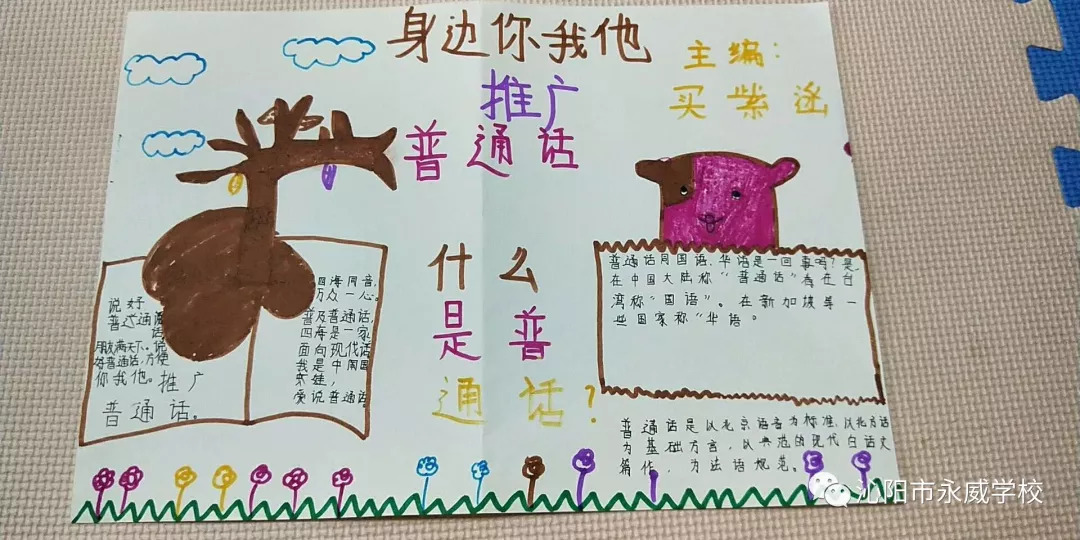 身边你我他
推广
普通话
主编:
买紫
什么
是普
通话?
说好
普通通
话
朋友满天下。说
好普通话,方便
你我他。推广
普通话。
四海同音,
万众一心。
普及普通话,
四海是一家
面向现代话
我是中国
娃,
爱说普通话
普通话同国语、华语是一回事吗?是,
在中国大陆称“普通话”在台
湾称“国语”。在新加坡等一
些国家称“华语。
普通话是以北京语音为标准,以北方话
为基础方言,以典范的现代白话文
作,为法语规范。
沁阳市永威学校